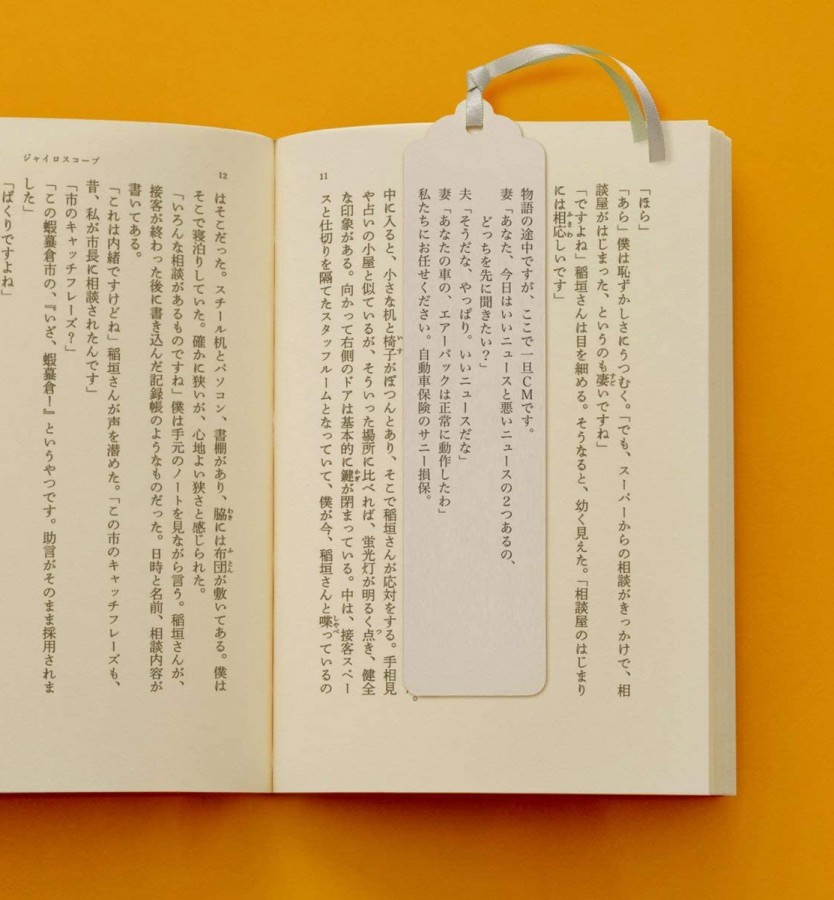 「ほら」
「あら」僕は恥ずかしさにうつむく。「でも、スーパーからの相談がきっかけで、相
談屋がはじまった、というのも凄いですね」
「ですよね」稲垣さんは目を細める。そうなると、幼く見えた。「相談屋のはじまり
には相応しいです」
物語の途中ですが、ここで一旦CMです。
妻「あなた、今日はいいニュースと悪いニュースの2つあるの、
どっちを先に聞きたい?」
夫「そうだな、やっぱり。いいニュースだな」
妻「あなたの車の、エアーバックは正常に動作したわ」
私たちにお任せください。自動車保険のサニー損保。
中に入ると、小さな机と椅子がぽつんとあり、そこで稲垣さんが応対をする。手相見
や占いの小屋と似ているが、そういった場所に比べれば、蛍光灯が明るく点き、健全
な印象がある。向かって右側のドアは基本的に鍵が閉まっている。中は、接客スペー
スと仕切りを隔てたスタッフルームとなっていて、僕が今、稲垣さんと喋っているの
11
12
ジャイロスコープ
はそこだった。スチール机とパソコン、書棚があり、脇には布団が敷いてある。僕は
そこで寝泊りしていた。確かに狭いが、心地よい狭さと感じられた。
「いろんな相談があるものですね」僕は手元のノートを見ながら言う。稲垣さんが、
接客が終わった後に書き込んだ記録帳のようなものだった。日時と名前、相談内容が
書いてある。
「これは内緒ですけどね」稲垣さんが声を潜めた。「この市のキャッチフレーズも、
昔、私が市長に相談されたんです」
「市のキャッチフレーズ?」
「この蝦蟇倉市の、『いざ、蝦蟇倉!』というやつです。助言がそのまま採用されま
した」
「ぱくりですよね」